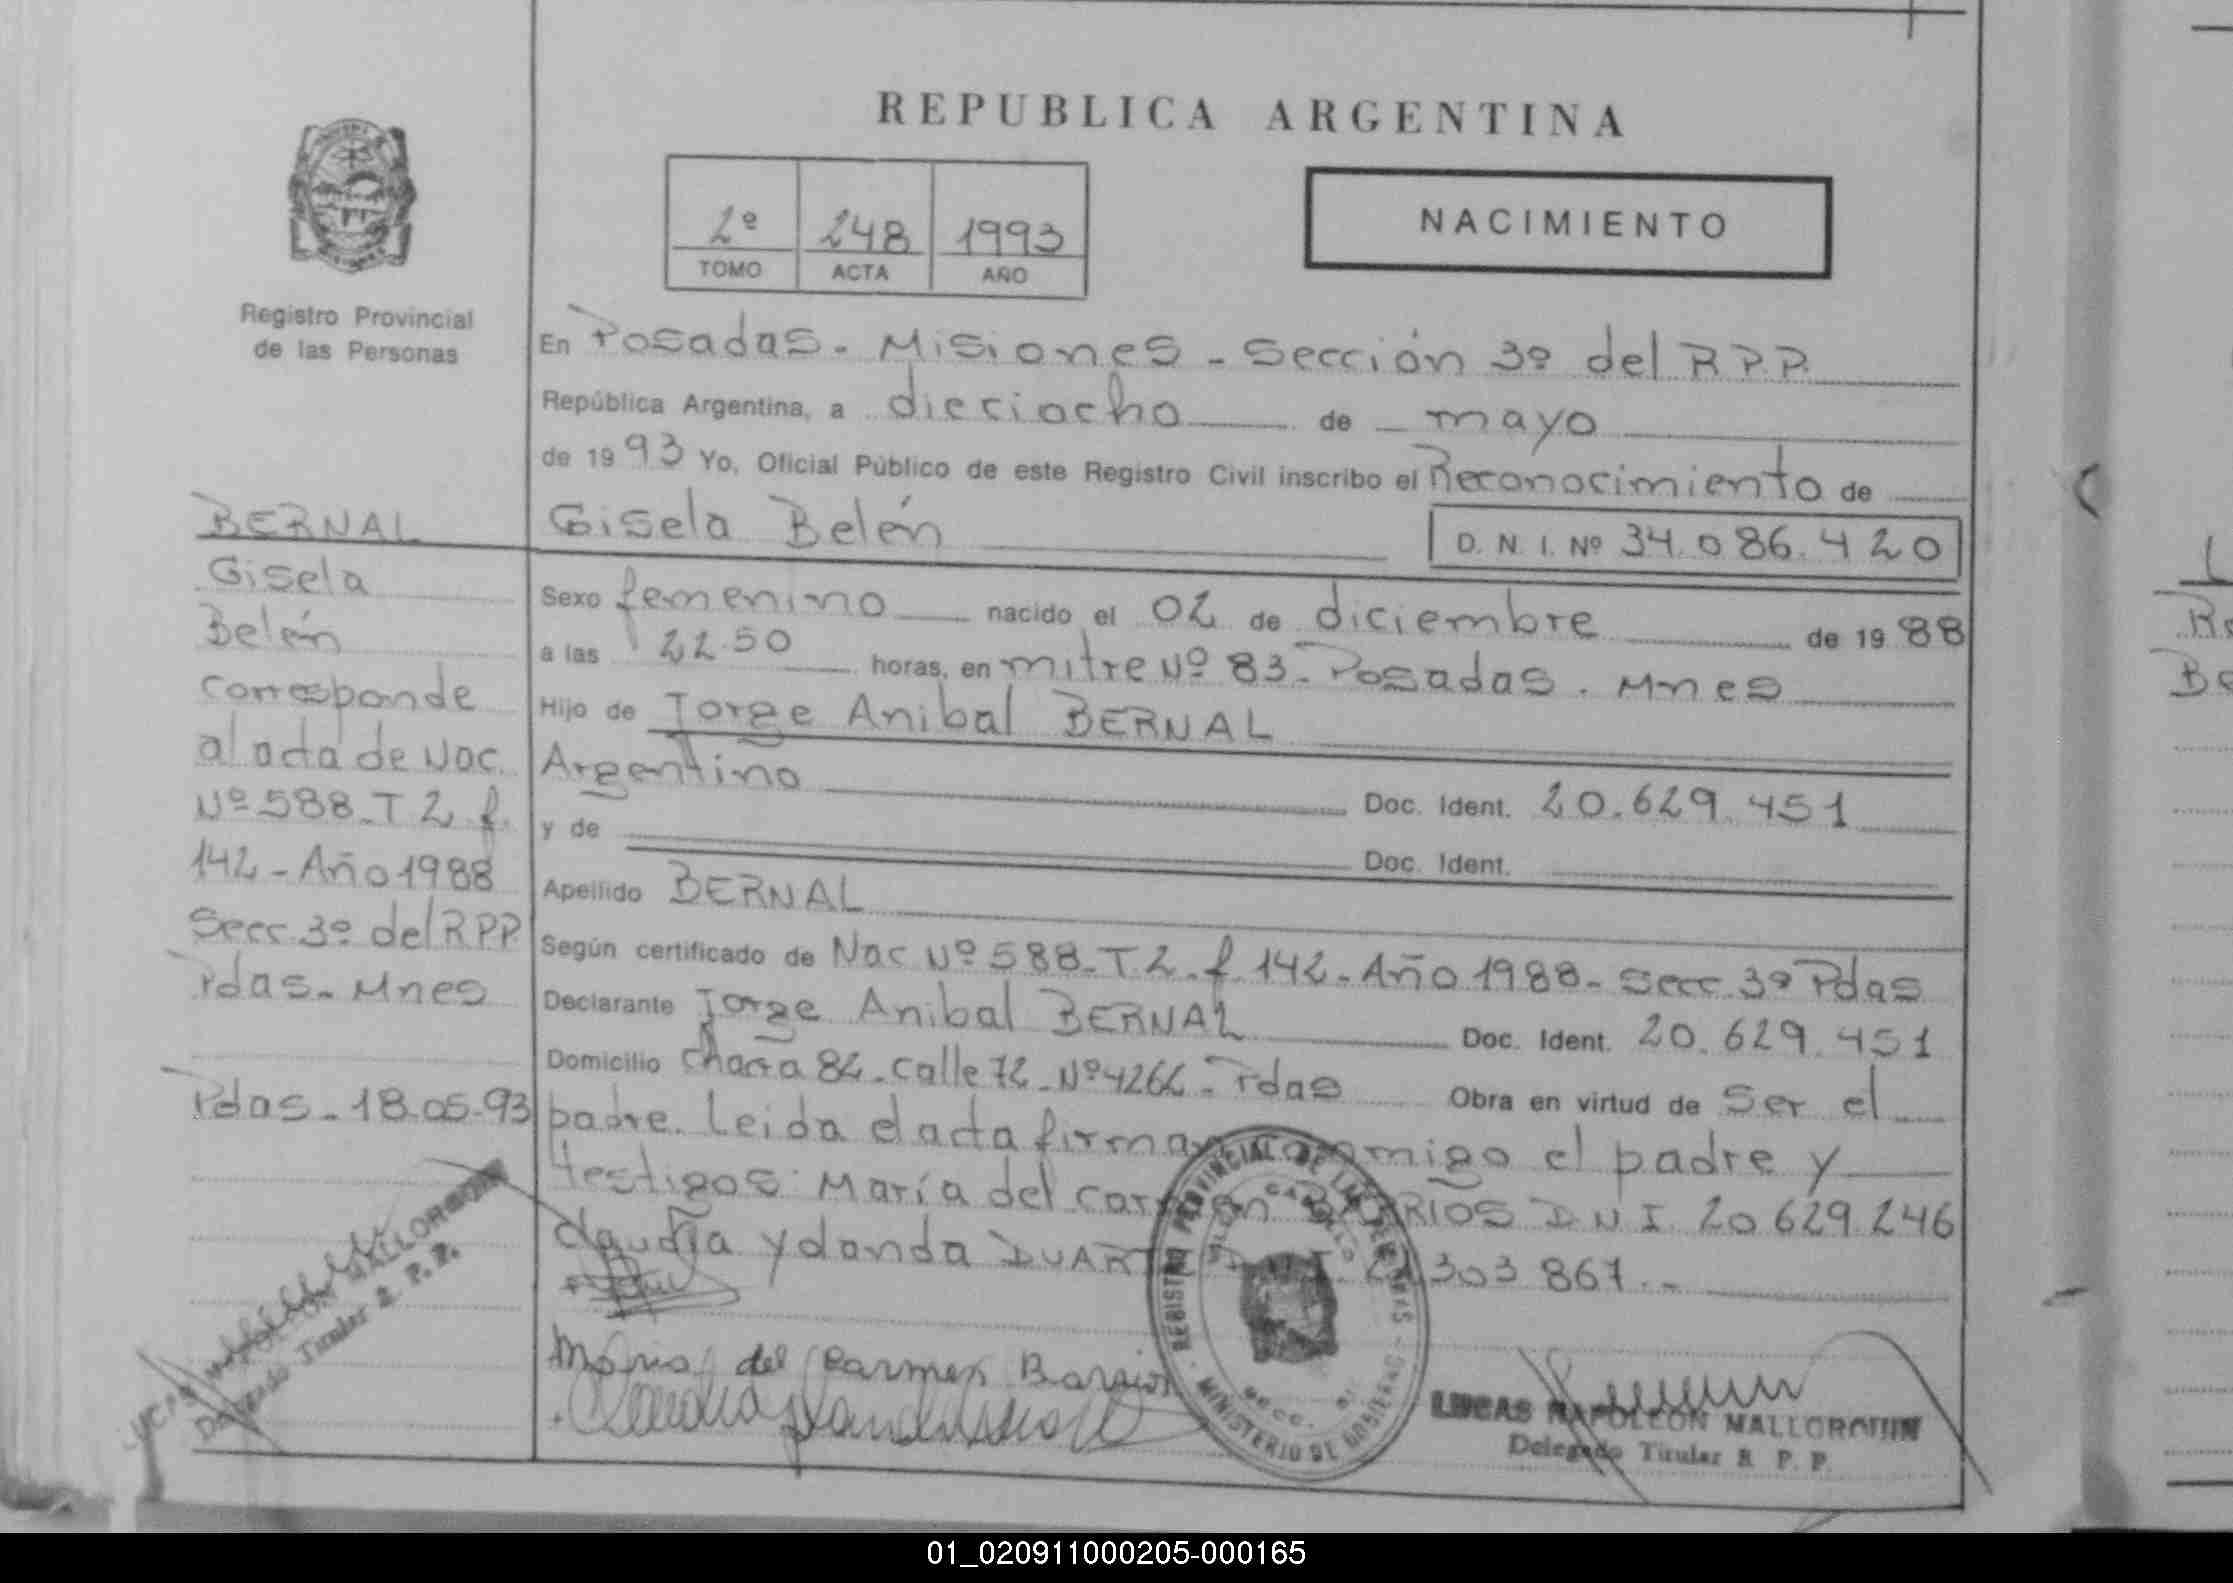 REPUBLICA ARGENTINA
2º 248 1993
TOMO ACTA AÑO
NACIMIENTO
Registro Provincial
de las Personas
BERNAL
Gisela
Belén
corresponde
al acta de Nac.
Nº 588-T 2 f.
142-Año 1988
Secc. 3º del RPP
Pdas-Mnes
Pdas-18-05-93
NAPOLEON MALLORQUIN
Delegado Titular R. P. P.
En Posadas-Misiones-Sección 3º del RPP
República Argentina, a dieciocho de mayo
de 1993 Yo, Oficial Público de este Registro Civil inscribo el Reconocimiento de
Gisela Belén D. N. I. Nº 34.086.420
Sexo femenino nacido el 02 de diciembre de 1988
a las 22.50 horas, en mitre Nº 83-Posadas. Mnes
Hijo de Jorge Anibal BERNAL
Argentino Doc. Ident. 20.629.451
y de Doc. Ident.
Apellido BERNAL
Según certificado de Nac Nº 588-T 2-f. 142-Año 1988-Secc. 3º Pdas
Declarante Jorge Anibal BERNAL Doc. Ident. 20.629.451
Domicilio Chacra 82-calle 72-Nº 4262-Pdas Obra en virtud de Ser el
padre. Leida el acta firman conmigo el padre y
testigos: María del carmen BARRIOS D N I 20 629 246
claudia yolanda DUARTE 303 867.-
Maria del Carmen Barrios
REGISTRO PROVINCIAL DE LAS PERSONAS
MINISTERIO DE GOBIERNO
LUCAS NAPOLEON MALLORQUIN
Delegado Titular R. P. P.
01_020911000205-000165